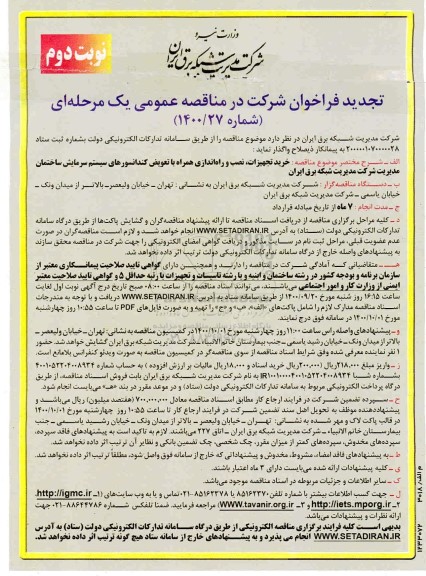 وزارت نیرو
شرکت مدیریت شبکه برق ایران
نوبت دوم
تجدید فراخوان شرکت در مناقصه عمومی یک مرحله‌ای
(شماره ۱۴۰۰/۲۷)
شرکت مدیریت شبکه برق ایران در نظر دارد موضوع مناقصه را از طریق سامانه تدارکات الکترونیکی دولت بشماره ثبت ستاد
به پیمانکار ذیصلاح واگذار نماید:
الف - شرح مختصر موضوع مناقصه: خرید تجهیزات، نصب و راه‌اندازی همراه با تعویض کندانسورهای سیستم سرمایش ساختمان
مدیریت شرکت مدیریت شبکه برق ایران
ب - دستگاه مناقصه‌گزار: شرکت مدیریت شبکه برق ایران به نشانی: تهران - خیابان ولیعصر - بالاتر از میدان ونک -
خیابان یاسمی - شرکت مدیریت شبکه برق ایران
ج - مدت انجام: ۷ ماه از تاریخ مبادله قرارداد
د - کلیه مراحل برگزاری مناقصه از دریافت اسناد مناقصه تا ارائه پیشنهاد مناقصه‌گران و گشایش پاکت‌ها از طریق درگاه سامانه
تدارکات الکترونیکی دولت (ستاد) به آدرس WWW.SETADIRAN.IR انجام خواهد شد و لازم است مناقصه‌گران در صورت
عدم عضویت قبلی، مراحل ثبت نام در سایت مذکور و دریافت گواهی امضای الکترونیکی را جهت شرکت در مناقصه محقق سازند
به پیشنهادهای واصله خارج از درگاه سامانه تدارکات الکترونیکی دولت ترتیب اثر داده نخواهد شد.
هـ - متقاضیانی که آمادگی شرکت در مناقصه را دارند و همچنین دارای گواهی تایید صلاحیت پیمانکاری معتبر از
سازمان برنامه و بودجه کشور در رشته ساختمان و ابنیه و یا رشته تاسیسات و تجهیزات با رتبه حداقل ۵ و گواهی تایید صلاحیت معتبر
ایمنی از وزارت کار و امور اجتماعی می‌باشند، می‌توانند اسناد مناقصه را از ساعت ۰۸:۰۰ صبح تاریخ درج آگهی نوبت اول لغایت
ساعت ۱۶:۱۵ روز شنبه مورخ ۱۴۰۰/۰۹/۲۰ از طریق سامانه ستاد به آدرس: WWW.SETADIRAN.IR دریافت و با توجه به مندرجات
اسناد مناقصه مدارک لازم را شامل پاکت‌های «الف»، «ب» و «ج» را تهیه و به صورت فایل‌های PDF تا ساعت ۱۰:۵۵ روز چهارشنبه
مورخ ۱۴۰۰/۱۰/۰۱ در سامانه فوق درج نمایند.
و - پیشنهادهای واصله راس ساعت ۱۱:۰۰ روز چهارشنبه مورخ ۱۴۰۰/۱۰/۰۱ در کمیسیون مناقصه به نشانی: تهران - خیابان ولیعصر -
بالاتر از میدان ونک - خیابان رشید یاسمی - جنب بیمارستان خاتم الانبیاء - شرکت مدیریت شبکه برق ایران گشایش خواهد شد. حضور
۱ نفر نماینده معرفی شده وفق شرایط اسناد مناقصه از سوی مناقصه‌گر در کمیسیون مناقصه به صورت ویدئو کنفرانس بلامانع است.
درگاه پرداخت الکترونیکی مربوط به سامانه تدارکات الکترونیکی دولت (ستاد) و در موعد مقرر در بند «هـ» می‌بایست انجام شود.
ح - سپرده تضمین شرکت در فرایند ارجاع کار مطابق اسناد مناقصه معادل ۷۰۰,۰۰۰,۰۰۰ (هفتصد میلیون) ریال می‌باشد و
پیشنهاددهنده موظف به تحویل اصل سند تضمین شرکت در فرایند ارجاع کار تا ساعت ۱۰:۵۵ روز چهارشنبه مورخ ۱۴۰۰/۱۰/۰۱
در قالب پاکت لاک و مهر شده به نشانی: تهران - خیابان ولیعصر - بالاتر از میدان ونک - خیابان رشید یاسمی - جنب
بیمارستان خاتم الانبیاء - شرکت مدیریت شبکه برق ایران - اتاق ۲۲۷ می‌باشند. لازم به تاکید است به پیشنهادهای فاقد سپرده،
سپرده‌های مخدوش، سپرده‌های کمتر از میزان مقرر، چک شخصی، چک تضمین بانکی و نظایر آن ترتیب اثر داده نخواهد شد.
ط - به پیشنهادهای فاقد امضا، مشروط، مخدوش و پیشنهاداتی که خارج از سامانه فوق واصل شود، مطلقا ترتیب اثر داده نخواهد شد.
ی - کلیه پیشنهادات ارائه شده می‌بایست دارای ۳ ماه اعتبار باشند.
ک - سایر اطلاعات و جزئیات مربوطه در اسناد مناقصه موجود می‌باشد.
ل - جهت کسب اطلاعات بیشتر با شماره تلفن ۸۵۱۶۲۳۷۰ یا ۸۵۱۶۲۳۷۸-۰۲۱ تماس و یا به وب سایت‌های (۱- http://igmc.ir
۲- http://iets.mporg.ir و ۳- www.tavanir.org.ir) مراجعه فرمایید. ضمنا تلفکس شماره ۸۸۶۴۴۷۸۶-۰۲۱ جهت
ارائه نظرات و پیشنهادات می‌باشد.
بدیهی است کلیه فرایند برگزاری مناقصه الکترونیکی از طریق درگاه سامانه تدارکات الکترونیکی دولت (ستاد) به آدرس
WWW.SETADIRAN.IR انجام می پذیرد و به پیشنهادهای خارج از سامانه ستاد هیچ گونه ترتیب اثر داده نخواهد شد.